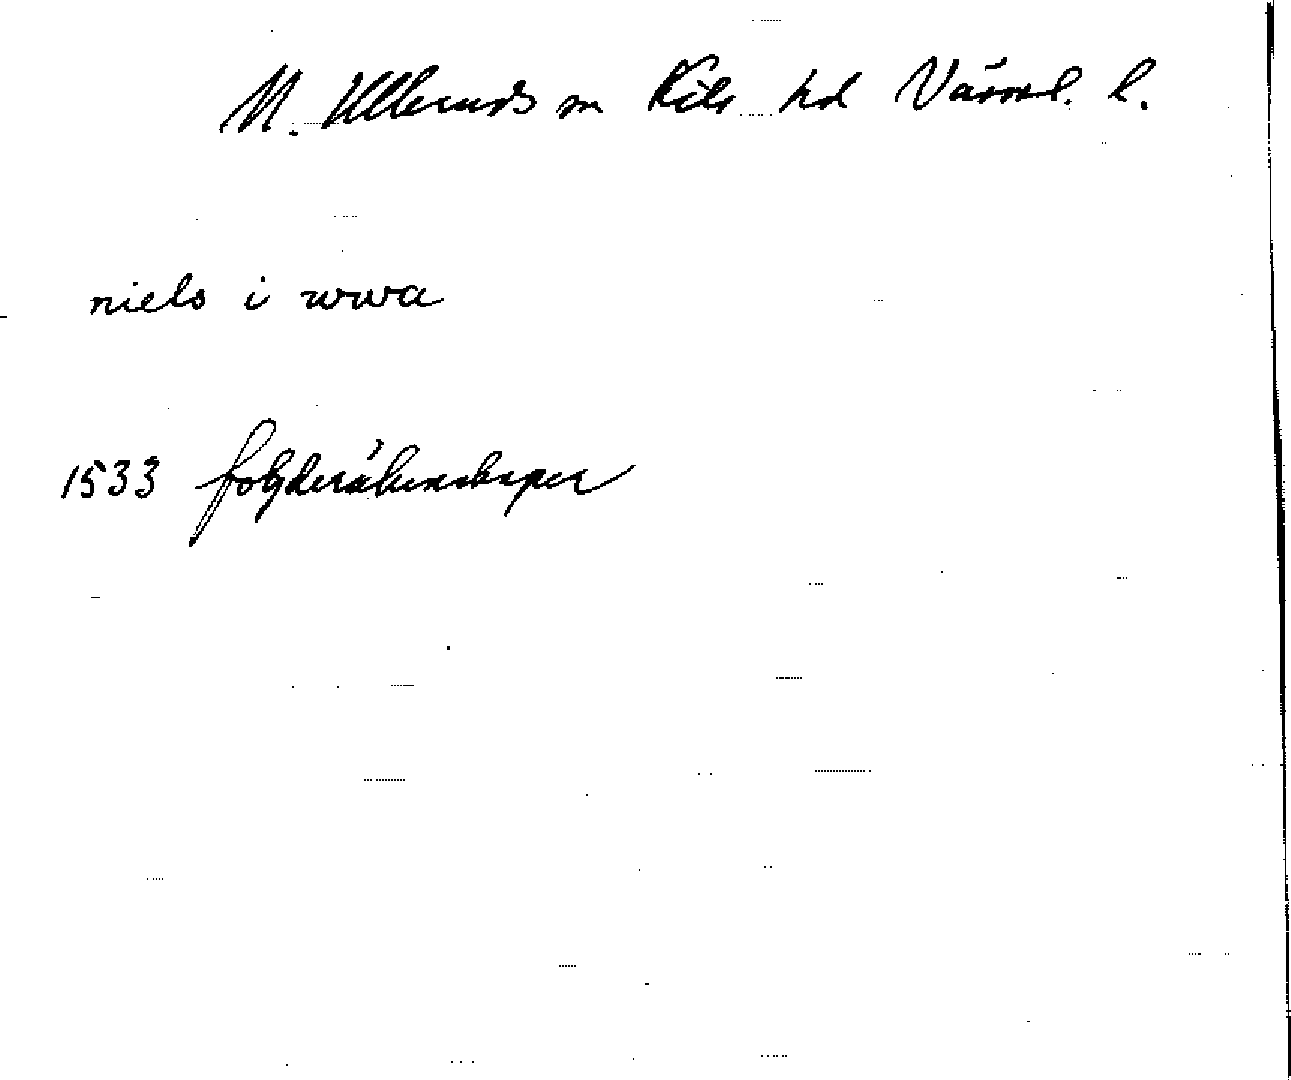 N. Ulleruds sn Kils hd Värml. l.
niels i wwa
1533 fogderäkenskaper